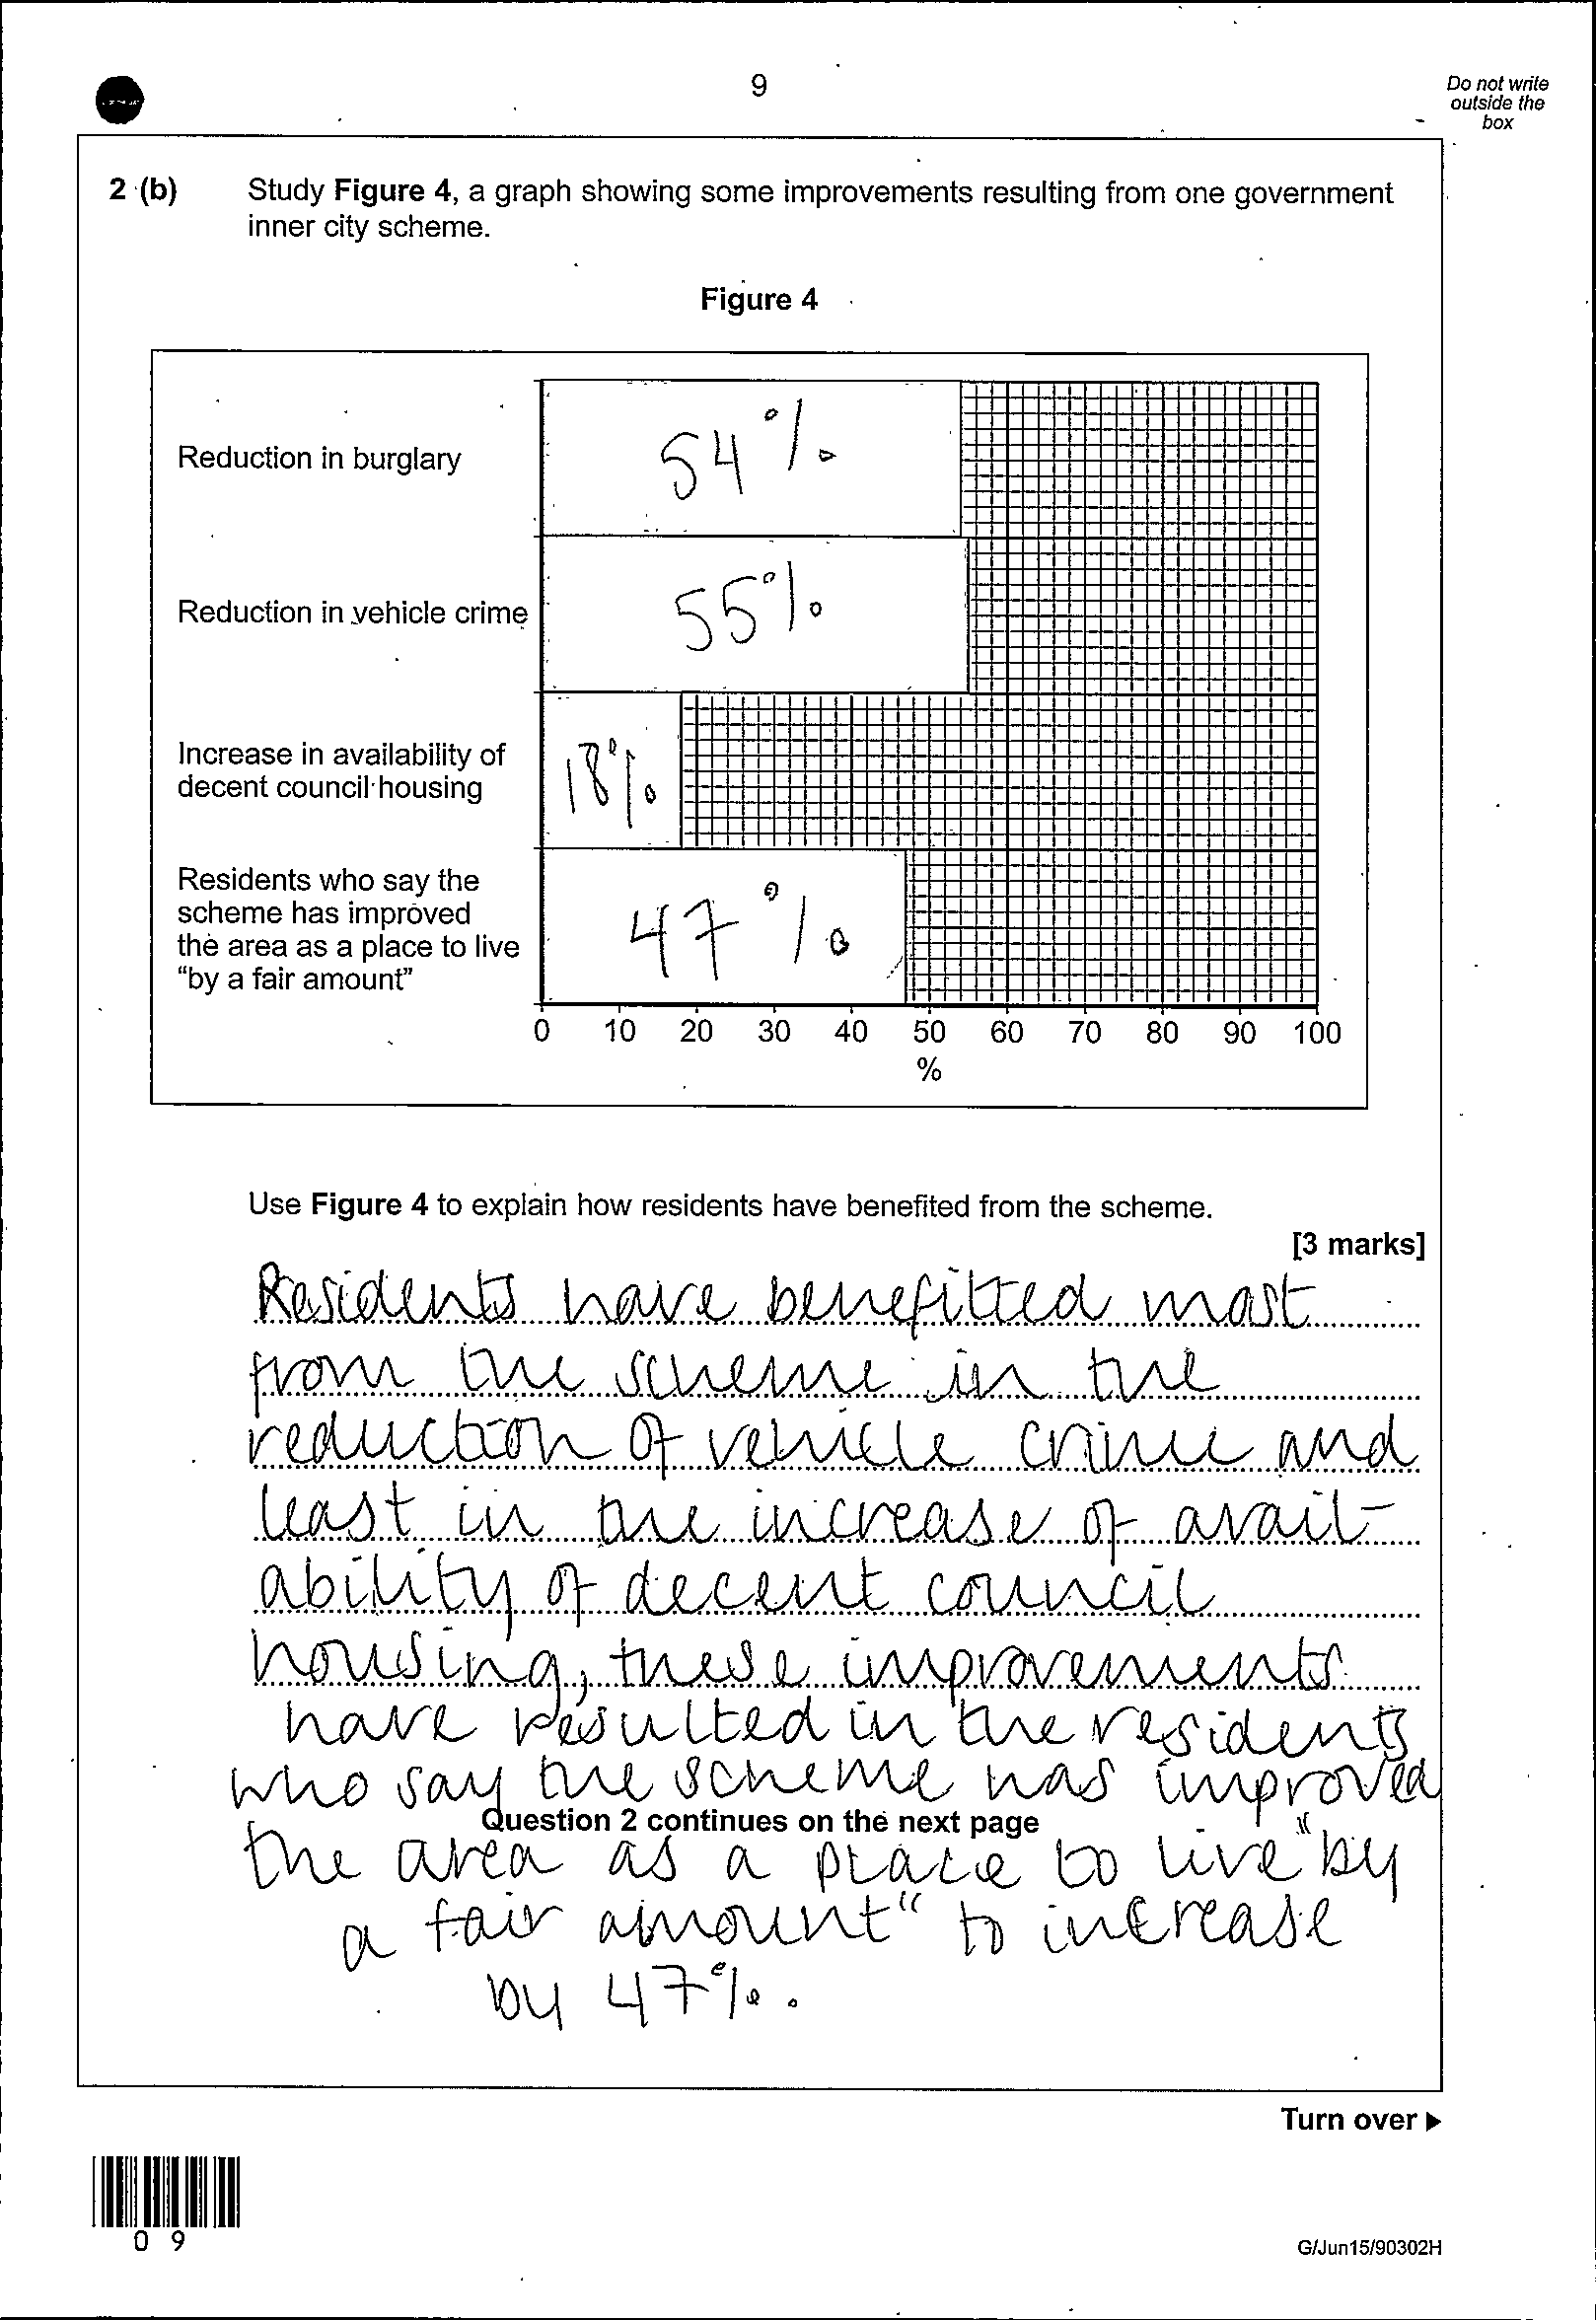 9
Do not write
outside the
box
2 (b) Study Figure 4, a graph showing some improvements resulting from one government
inner city scheme.
Figure 4
Reduction in burglary
54%
Reduction in vehicle crime
55%
Increase in availability of
decent council housing
18%
Residents who say the
scheme has improved
the area as a place to live
“by a fair amount”
47%
0 10 20 30 40 50 60 70 80 90 100
%
Use Figure 4 to explain how residents have benefited from the scheme.
[3 marks]
Residents have benefitted most
from the scheme in the
reduction of vehicle crime and
least in the increase of avail-
ability of decent council
housing, these improvements
have resulted in the residents
who say the scheme has improved
Question 2 continues on the next page
the area as a place to live "by
a fair amount" to increase
by 47%.
Turn over ▶
0 9
G/Jun15/90302H